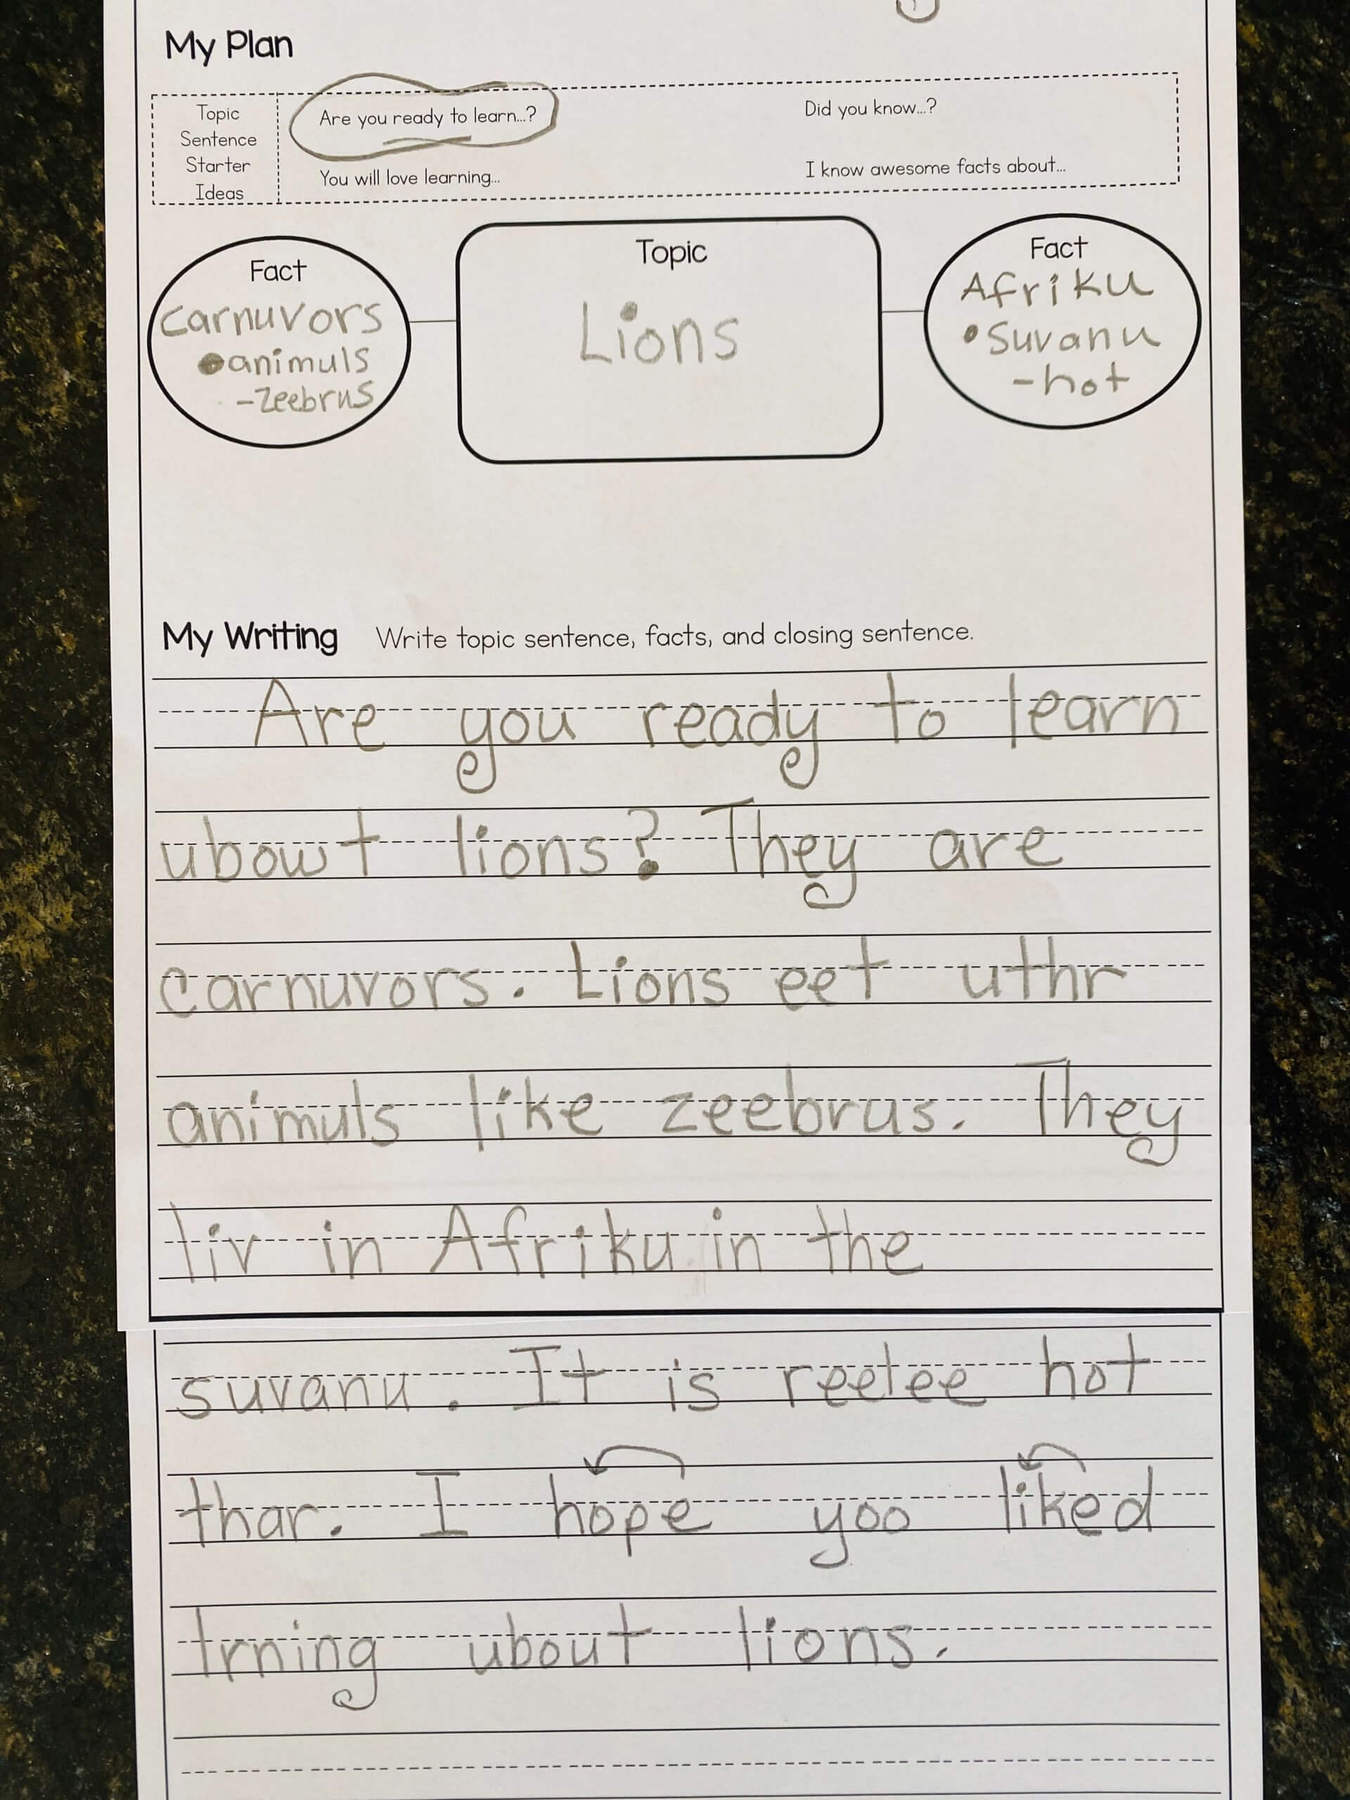 My Plan
Topic Sentence Starter Ideas
Are you ready to learn...?
Did you know...?
You will love learning...
I know awesome facts about...
Fact
carnuvors
•animuls
-zeebrus
Topic
Lions
Fact
Afriku
•suvanu
-hot
My Writing Write topic sentence, facts, and closing sentence.
Are you ready to learn
ubowt lions? They are
carnuvors. Lions eet uthr
animuls like zeebrus. They
liv in Afriku in the
suvanu. It is reelee hot
thar. I hope yoo liked
lrning ubout lions.